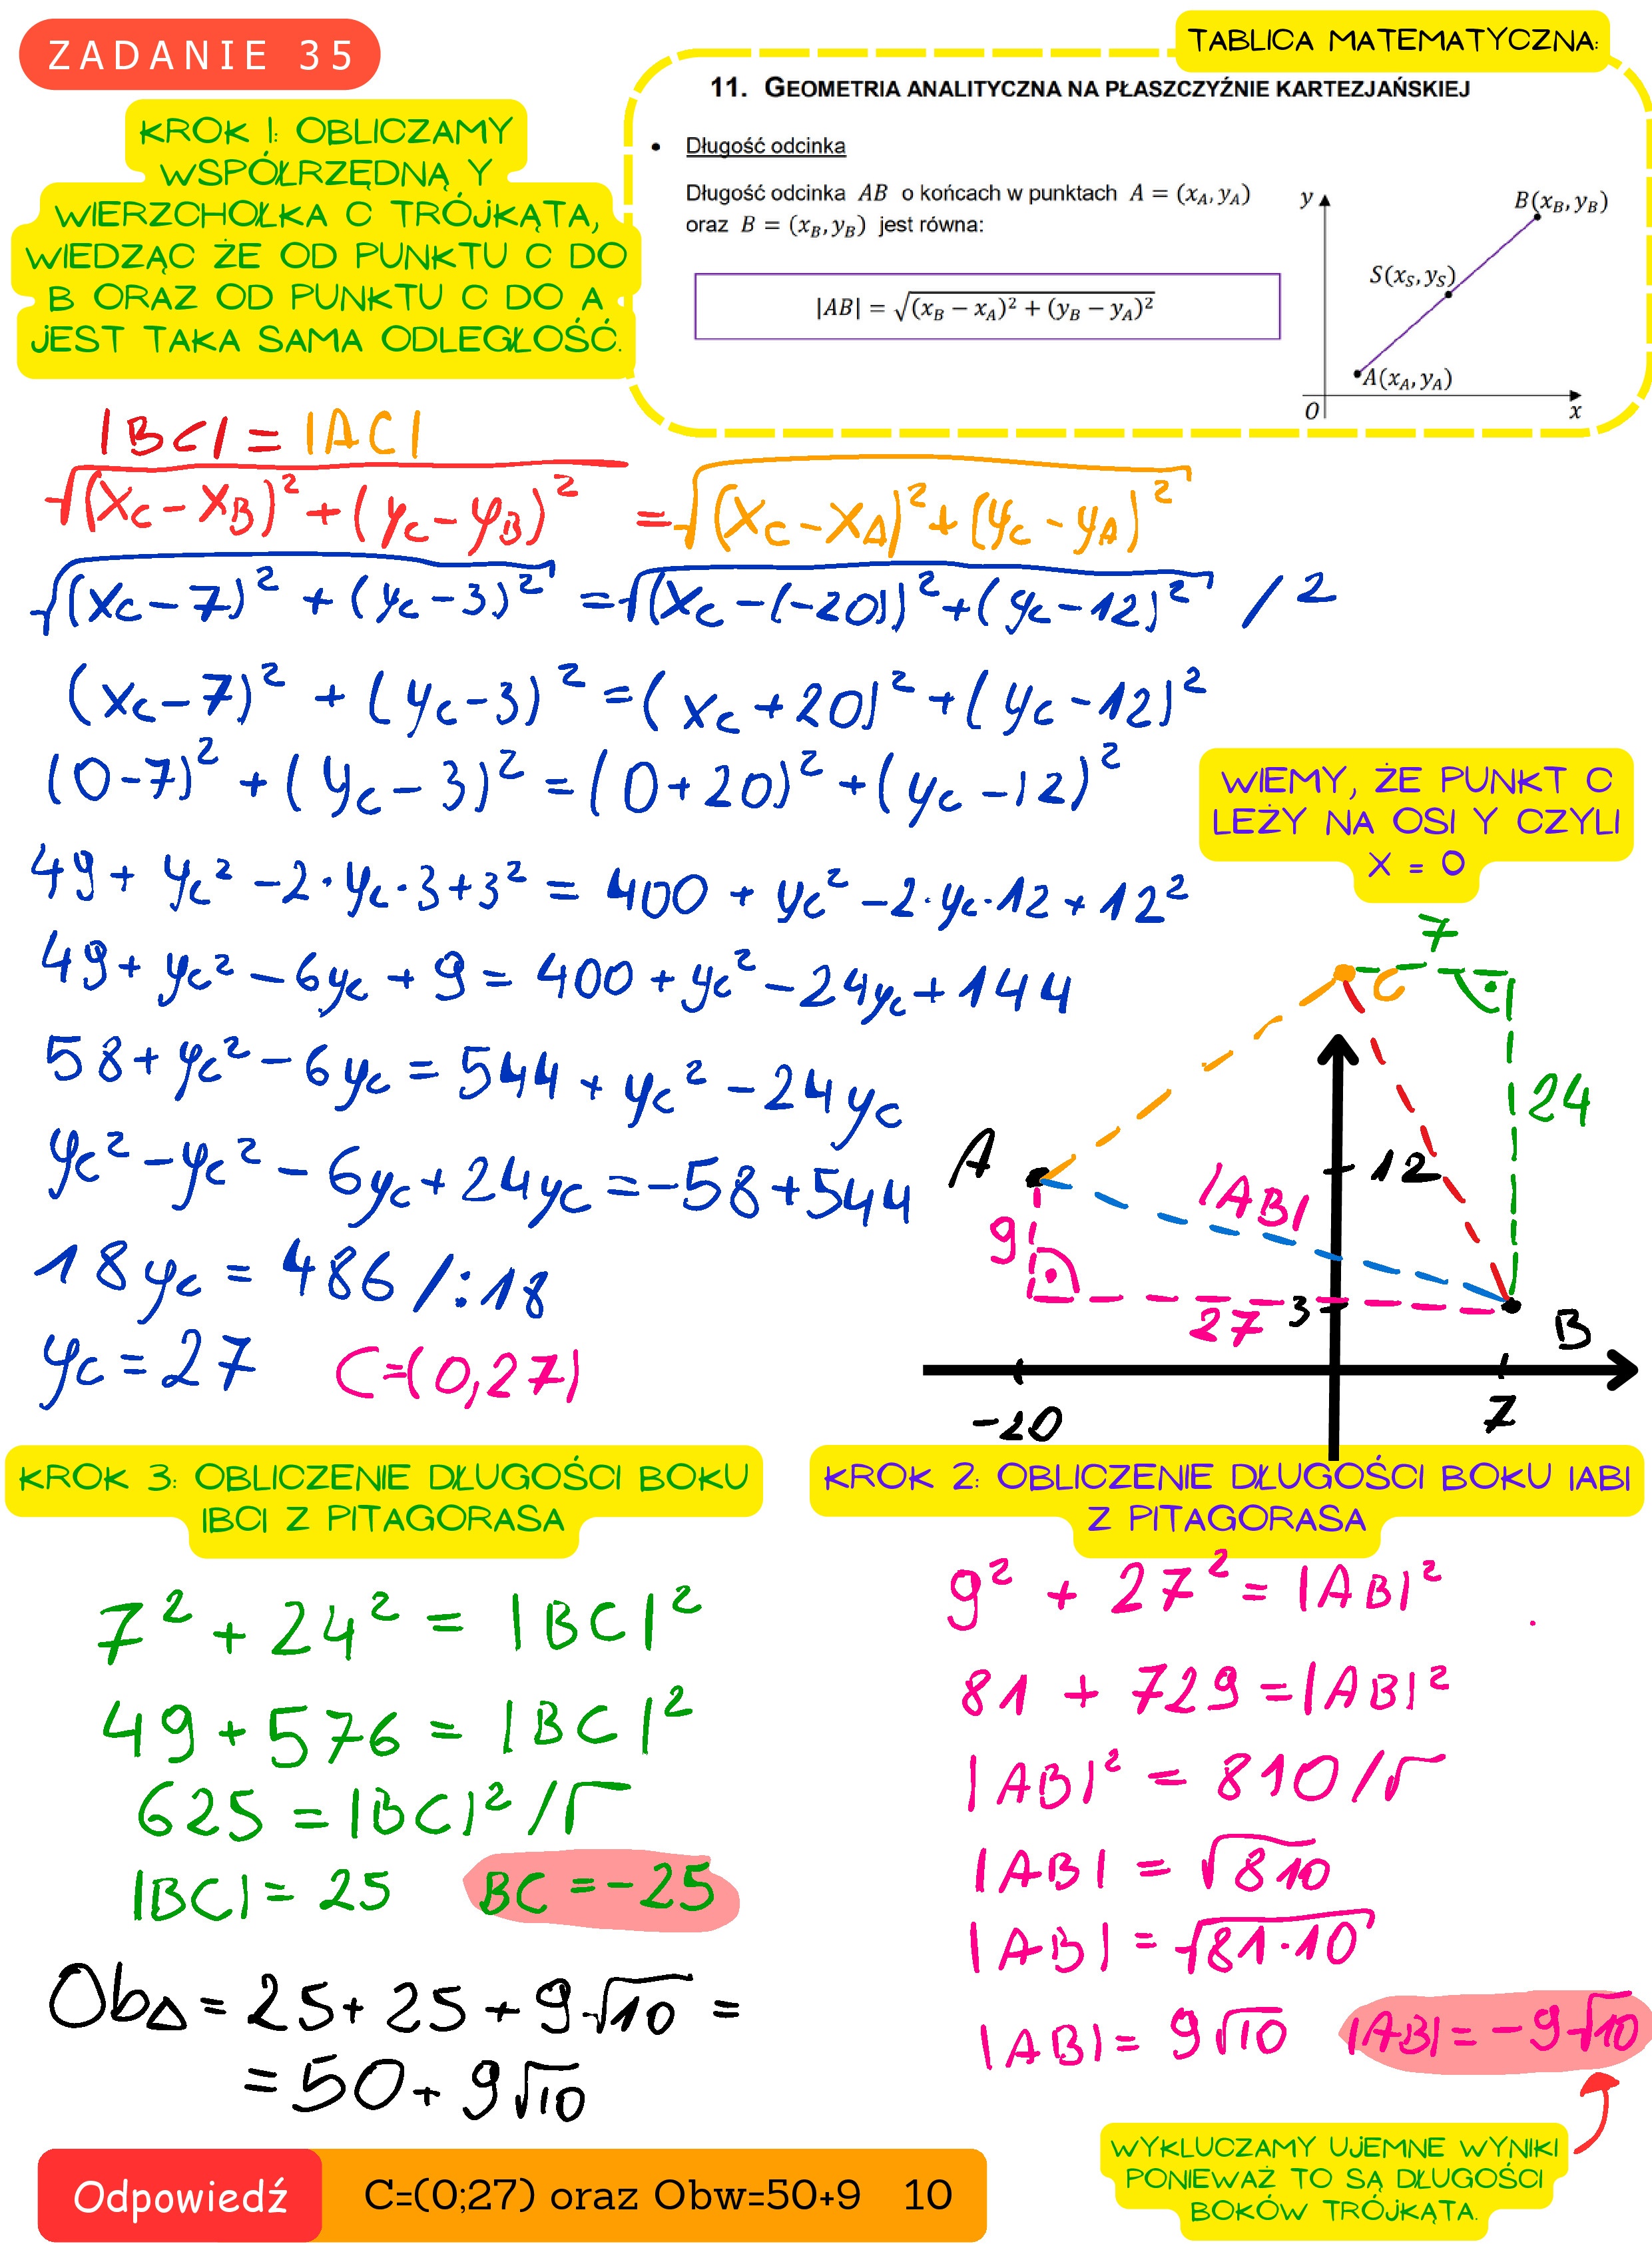 ZADANIE 35
TABLICA MATEMATYCZNA:
11. GEOMETRIA ANALITYCZNA NA PŁASZCZYŹNIE KARTEZJAŃSKIEJ
• Długość odcinka
Długość odcinka AB o końcach w punktach A = (x_A, y_A)
oraz B = (x_B, y_B) jest równa:
|AB| = √((x_B − x_A)² + (y_B − y_A)²)
y
B(x_B, y_B)
S(x_S, y_S)
A(x_A, y_A)
O
x
KROK 1: OBLICZAMY
WSPÓŁRZĘDNĄ Y
WIERZCHOŁKA C TRÓJKĄTA,
WIEDZĄC ŻE OD PUNKTU C DO
B ORAZ OD PUNKTU C DO A
JEST TAKA SAMA ODLEGŁOŚĆ.
|BC| = |AC|
√((x_C − x_B)² + (y_C − y_B)²) = √((x_C − x_A)² + (y_C − y_A)²)
√((x_C − 7)² + (y_C − 3)²) = √((x_C − (−20))² + (y_C − 12)²) / ²
(x_C − 7)² + (y_C − 3)² = (x_C + 20)² + (y_C − 12)²
(0 − 7)² + (y_C − 3)² = (0 + 20)² + (y_C − 12)²
WIEMY, ŻE PUNKT C
LEŻY NA OSI Y CZYLI
X = 0
49 + y_C² − 2·y_C·3 + 3² = 400 + y_C² − 2·y_C·12 + 12²
49 + y_C² − 6y_C + 9 = 400 + y_C² − 24y_C + 144
58 + y_C² − 6y_C = 544 + y_C² − 24y_C
y_C² − y_C² − 6y_C + 24y_C = −58 + 544
18y_C = 486 /:18
y_C = 27 C=(0,27)
7
C
24
A
12
|AB|
9
27
3
B
−20
7
KROK 3: OBLICZENIE DŁUGOŚCI BOKU
IBCI Z PITAGORASA
7² + 24² = |BC|²
49 + 576 = |BC|²
625 = |BC|² /√
|BC| = 25 BC = −25
Ob△ = 25 + 25 + 9√10 =
= 50 + 9√10
KROK 2: OBLICZENIE DŁUGOŚCI BOKU IABI
Z PITAGORASA
9² + 27² = |AB|²
81 + 729 = |AB|²
|AB|² = 810 /√
|AB| = √810
|AB| = √81·10
|AB| = 9√10 |AB| = −9√10
WYKLUCZAMY UJEMNE WYNIKI
PONIEWAŻ TO SĄ DŁUGOŚCI
BOKÓW TRÓJKĄTA.
Odpowiedź C=(0;27) oraz Obw=50+9 10